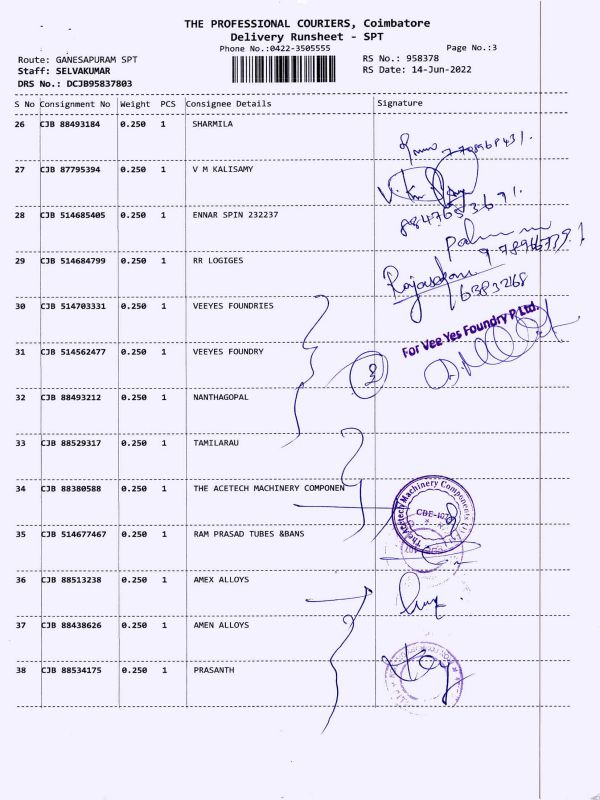 THE PROFESSIONAL COURIERS, Coimbatore
Delivery Runsheet - SPT
Phone No.:0422-3505555
Page No.:3
Route: GANESAPURAM SPT
RS No.: 958378
Staff: SELVAKUMAR
RS Date: 14-Jun-2022
DRS No.: DCJB95837803
S No Consignment No Weight PCS Consignee Details Signature
26 CJB 88493184 0.250 1 SHARMILA
27 CJB 87795394 0.250 1 V M KALISAMY
28 CJB 514685405 0.250 1 ENNAR SPIN 232237
29 CJB 514684799 0.250 1 RR LOGIGES
30 CJB 514703331 0.250 1 VEEYES FOUNDRIES
For Vee Yes Foundry P Ltd.
31 CJB 514562477 0.250 1 VEEYES FOUNDRY
32 CJB 88493212 0.250 1 NANTHAGOPAL
33 CJB 88529317 0.250 1 TAMILARAU
34 CJB 88380588 0.250 1 THE ACETECH MACHINERY COMPONEN
35 CJB 514677467 0.250 1 RAM PRASAD TUBES &BANS
36 CJB 88513238 0.250 1 AMEX ALLOYS
37 CJB 88438626 0.250 1 AMEN ALLOYS
38 CJB 88534175 0.250 1 PRASANTH